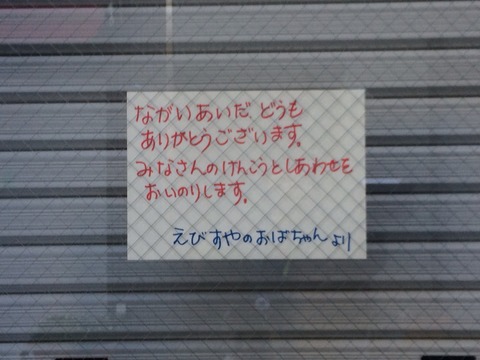 ながいあいだ、どうも
ありがとうございます。
みなさんのけんこうとしあわせを
おいのりします。
えびすやのおばちゃんより